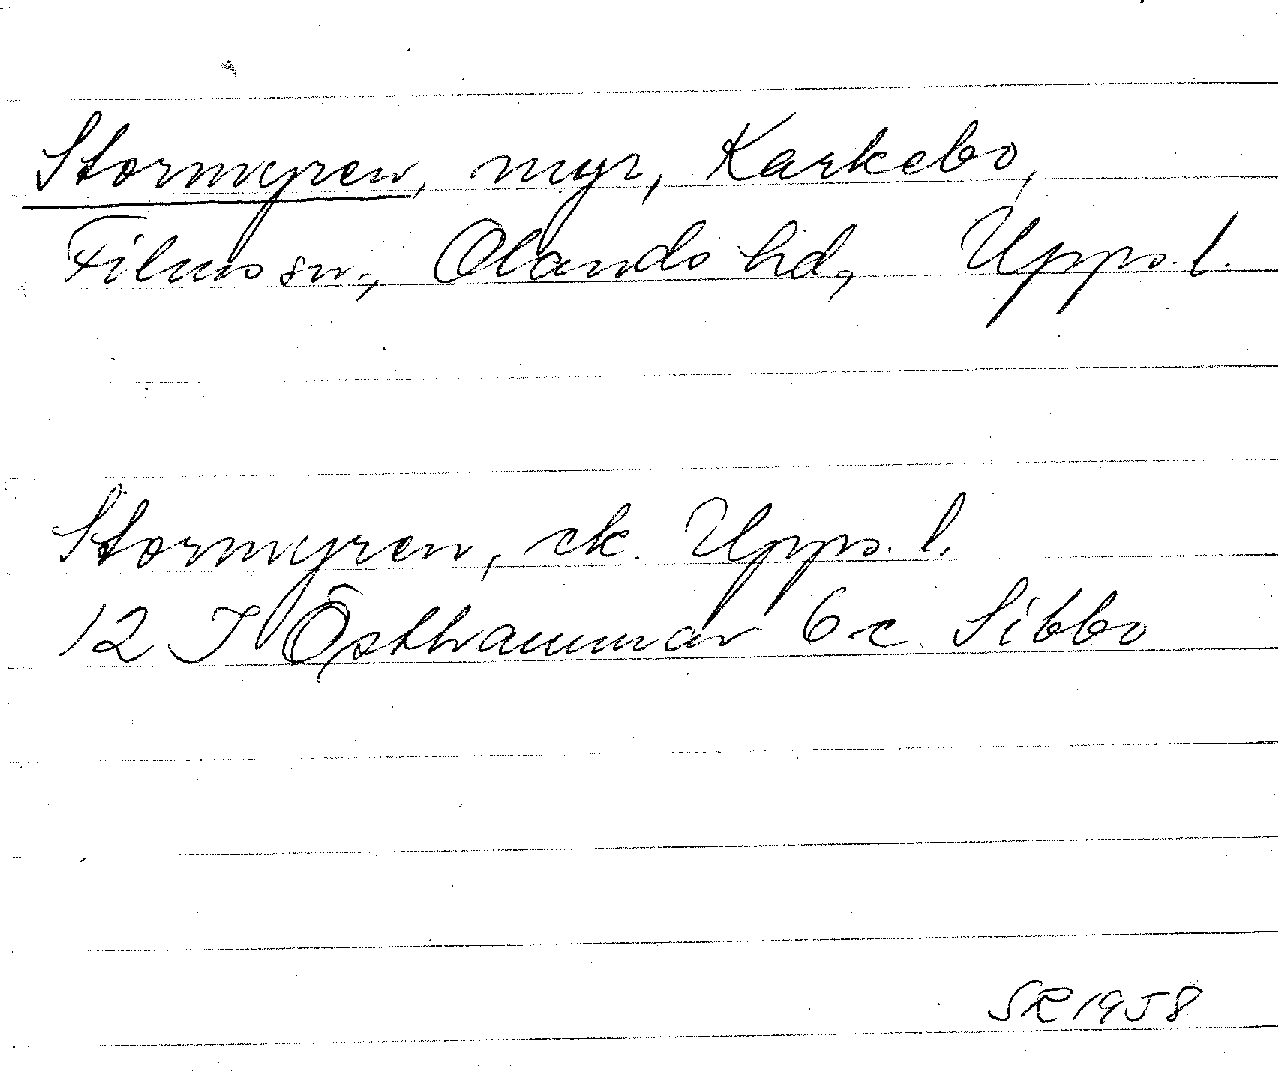 Stormyren, myr, Karkebo,
Films sn., Olands hd, Upps. l.
Stormyren, ek. Upps. l.
12 I Östhammar 6 c Sibbo
SR 1958